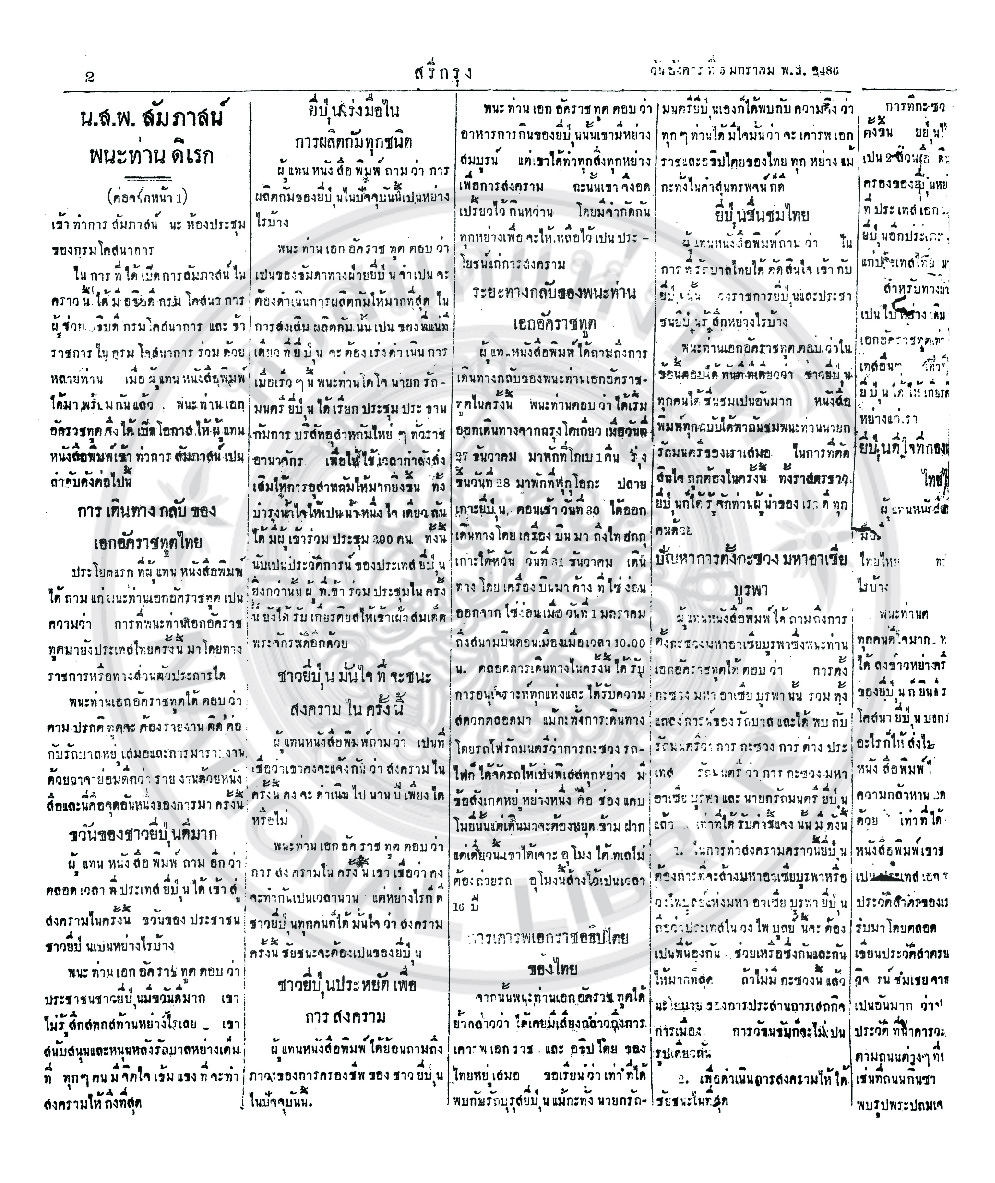 2
สรีกรุง
วันอังคาร ที่ 5 มกราคม พ.ส. 2486
น.ส.พ. สัมภาสน์
พนะท่าน ดิเรก
(ต่อจากหน้า 1)
เข้าทำการ สัมภาสน์ นะ ห้องประชุม
ของกรมโคสนาการ
ใน การ ที่ ได้ เปิด การ สัมภาสน์ ใน
คราวนี้ ได้ มี อธิบดี กรม โคสนา การ
ผู้ช่วย อธิบดี กรมโคสนาการ และ ข้า
ราชการ ใน กรม โคสนาการ ร่วม ด้วย
หลายท่าน เมื่อ ผู้ แทน หนังสือพิมพ์
ได้มา พร้อม กันแล้ว พนะท่าน เอก
อัคราชทูต จึงได้ เปิด โอกาส ให้ ผู้ แทน
หนังสือพิมพ์เข้า ทำการ สัมภาสน์ เป็น
ลำดับดังต่อไปนี้
การ เดินทาง กลับ ของ
เอกอัคราชทูตไทย
ประโยคแรก ที่ผู้ แทน หนังสือพิมพ์
ได้ ถาม แก่ พนะท่าน เอกอัคราชทูต เป็น
ความว่า การที่พนะท่านเอกอัคราช
ทูตมายังประเทสไทยครั้งนี้ มาโดยทาง
ราชการหรือทางส่วนตัวประการใด
พนะท่านเอกอัคราชทูตได้ ตอบ ว่า
ตาม ปรกติ ทูตจะ ต้องรายงาน ติด ต่อ
กับรัถบาลหยู่ เสมอและการมารายงาน
ด้วยวาจาย่อมดีกว่า ราย งานด้วยหนัง
สือและนี่คือจุดอันหนึ่งของการมา ครั้งนี้
ขวันของชาวยี่ปุ่นดีมาก
ผู้ แทน หนัง สือ พิมพ์ ถาม อีก ว่า
ตลอด เวลา ที่ ประเทส ยี่ปุ่น ได้ เข้า สู่
สงครามในครั้งนี้ ขวันของ ประชาชน
ชาวยี่ปุ่นเปนหย่างไรบ้าง
พนะ ท่าน เอก อัคราช ทูต ตอบ ว่า
ประชาชนชาวยี่ปุ่นมีขวันดีมาก เขา
ไม่รู้สึกสทกสท้านหย่างไรเลย เขา
สนับสนุนและหนุนหลังรัถบาลหย่างเต็ม
ที่ ทุกๆ คน มี จิตใจ เข้ม แขง ที่ จะ ทำ
สงครามให้ ถึงที่สุด
ยี่ปุ่นเร่งมือใน
การผลิตภัมทุกชนิด
ผู้ แทน หนัง สือ พิมพ์ ถาม ว่า การ
ผลิตภัมของยี่ปุ่นในปัจจุบันนี้เปนหย่าง
ไรบ้าง
พนะ ท่าน เอก อัคราช ทูต ตอบ ว่า
เปนของธัมดาทางฝ่ายยี่ปุ่น จำเปน จะ
ต้องดำเนินการผลิตภัมให้มากที่สุด ใน
การส่งเสิม ผลิตภัม นั้น เปน ของ
เดียว ที่ ยี่ ปุ่น จะ ต้อง เร่ง ดำ เนิน การ
เมื่อเร็วๆ นี้ พนะท่านโตโจ นายก รัถ-
มนตรี ยี่ปุ่น ได้ เรียก ประชุม ประ ธาน
กัมการ บริสัทอุสาหกัมไหย่ ๆ ทั่วราช
อานาจักร เพื่อ ให้ ใช้ เวลากำลังส่ง
เสิมให้การอุสาหกัมให้มากยิ่งขึ้น ทั้ง
บำรุงน้ำใจให้เปน น้ำ หนึ่ง ใจ เดียว กัน
ได้ มีผู้ เข้าร่วม ประชุม 200 คน ทั้งนี้
นับเปนประวัติการน์ ของประเทส ยี่ปุ่น
ยิ่งกว่านี้ ผู้ ที่เข้า ร่วม ประชุมใน ครั้ง
นี้ ยังได้ รับ เกียรติยสให้เข้าเฝ้า สมเด็ด
พระจักรพัดิอีกด้วย
ชาวยี่ปุ่น มั่นใจ ที่ จะชนะ
สงคราม ใน ครั้ง นี้
ผู้ แทนหนังสือพิมพ์ถามว่า เปนที่
เชื่อว่าเขาคงจะแจ้งกัน ว่า สงคราม ใน
ครั้งนี้ คง จะ ดำเนิน ไป นาน ปี เพียง ใด
หรือไม่
พนะท่าน เอก อัค ราช ทูต ตอบ ว่า
การ สง ครามใน ครั้งนี้ เขา เชื่อว่า คง
จะทำกันเปนเวลานาน แต่หย่างไรก็ ดี
ชาวยี่ปุ่นทุกคนก็ได้ มั่นใจ ว่า สงคราม
ครั้งนี้ ชัยชนะจะต้องเปนของยี่ปุ่น
ชาวยี่ปุ่นประหยัด เพื่อ
การ สงคราม
ผู้ แทนหนังสือพิมพ์ ได้ย้อนถามถึง
ภาวะของการครองชีพ ของ ชาวยี่ปุ่น
ในปัจจุบันนี้.
พนะ ท่าน เอก อัคราช ทูต ตอบ ว่า
อาหารการกินของยี่ปุ่นนั้นเขามีหย่าง
สมบูรน์ แต่เขาได้ทำทุกสิ่งทุกหย่าง
เพื่อการสงคราม ฉะนั้นเขาจึงอด
เปรี้ยวไว้ กินหวาน โดยมีจำกัดกัน
ทุกหย่างเพื่อ จะให้ เหลือไว้ เปน ประ -
โยชน์แก่การสงคราม
ระยะทางกลับของพนะท่าน
เอกอัคราชทูต
ผู้ แทนหนังสือพิมพ์ ได้ถามถึงการ
เดินทางกลับของพนะท่านเอกอัคราช-
ทูตในครั้งนี้ พนะท่านตอบ ว่า ได้เริ่ม
ออกเดินทางจากกรุงโตเกียว เมื่อวันที่
27 ธันวาคม มาพักที่โกเบ 1 คืน รุ่ง
ขึ้นวันที่ 28 มาพักที่ฟูกูโอกะ ปลาย
เกาะยี่ปุ่น ตอนเช้า วันที่ 30 ได้ออก
เดินทางโดย เครื่อง บิน มา ถึงไทฮกกุ
เกาะไต้หวัน วันที่ 31 ธันวาคม เดิน
ทาง โดย เครื่องบินมา ค้าง ที่ ไซ่ ง่อน
ออกจาก ไซ่ง่อนเมื่อ วันที่ 1 มกราคม
ถึงสนามบินดอนเมืองเมื่อเวลา 10.00
น. ตลอดการเดินทางในครั้งนี้ ได้ รับ
การอนุเจราะห์ทุกแห่งและ ได้รับความ
สดวกตลอดมา แม้กะทั่งการเดินทาง
โดยรถไฟรัถมนตรีว่าการกะซวง รถ-
ไฟก็ ได้จัดรถให้เปนพิเสสทุกหย่าง มี
ข้อสังเกตหยู่ หย่างหนึ่ง คือ ช่อง แคบ
โมยินั้นแต่เดิมมาจะต้องหยุด ข้าม ฟาก
แต่เดี๋ยวนี้เขาได้เจาะ อุโมง ใต้ ทเลไม่
ต้อง ถ่ายรถ อุโมงนี้สร้างไว้เปนเวลา
16 ปี
การเคารพเอกราชอธิปไตย
ของไทย
จากนั้นพนะท่านเอกอัคราช ทูตได้
ย้ำกล่าวว่า ได้เคยมีเสียงกล่าวถึงการ
เคารพ เอก ราช และ อธิป ไตย ของ
ไทยหยู่เสมอ ขอเรียนว่า เท่า ที่ได้
พบกับรัถบุรุสยี่ปุ่น แม้กะทั่ง นายกรัถ-
มนตรียี่ปุ่นเองก็ได้พบกับ ความจิง ว่า
ทุก ๆ ท่านได้ มีใจมั่นว่า จะ เคารพ เอก
ราชและอธิปไตยของไทย ทุก หย่าง แม้
กะทั่งในคำสุนทรพจน์ ก็ดี
ยี่ปุ่นชื่นชมไทย
ผู้ แทนหนังสือพิมพ์ถาม ว่า ใน
การ ที่รัถบาลไทยได้ ตัด สินใจ เข้า กับ
ยี่ปุ่นนั้น ราชการยี่ปุ่นและประชา
ชนยี่ปุ่น รู้ สึกหย่างไรบ้าง
พนะท่านเอกอัคราชทูตตอบ ว่าใน
ข้อนี้ตอบได้ ทันที ทีเดียวว่า ชาวยี่ปุ่น
ทุกคนได้ ชื่นชมเปนอันมาก หนังสือ
พิมพ์ทุกฉบับได้พากันชมพนะท่านนายก
รัถมนตรีของเราเสมอ ในการที่ตัด
สินใจ ถูกต้องในครั้งนี้ ทั้งราสดรชาว
ยี่ปุ่นก็ได้ รู้ จักท่านผู้ นำของ เรา ดี ทุก
คนด้วย
ปัญหาการตั้งกะซวง มหาอาเซีย
บูรพา
ผู้ แทนหนังสือพิมพ์ได้ ถามถึงการ
ตั้งกะซวงมหาอาเซียบูรพาซึ่งพนะท่าน
เอกอัคราชทูตได้ ตอบ ว่า การตั้ง
กะซวง มหา อาเซีย บูรพา นั้น รวม ทั้ง
แถลงการน์ของ รัถบาล และได้ พบ กับ
รัถมนตรีว่า การ กะซวง การ ต่าง ประ
เทส รัถมนตรี ว่า การ กะซวง มหา
อาเซีย บูรพา และ นายกรัถมนตรี ยี่ปุ่น
แล้ว เท่าที่ได้ รับคำชี้แจง นั้น มี ดังนี้
1. ในการทำสงครามคราวนี้ยี่ปุ่น
ต้องการที่จะสร้างมหาอาเซียบูรพาหรือ
วงไพบูลย์แห่งมหา อาเซีย บูรพา ยี่ปุ่น
ถือว่าประเทสใน วง ไพ บูลย์ นี้จะ ต้อง
เปนพี่น้องกัน ช่วยเหลือซึ่งกันและกัน
ให้มากที่สุด ถ้าไม่มี กะซวงนี้ แล้ว
นะโยบาย ของการประสานการเสถกิจ
การเมือง การวัธนธัมก็จะไม่เปน
รูปเดียวกัน
2. เพื่อดำเนินการสงครามให้ ได้
ชัยชนะในที่สุด
การที่กะซว
ตั้งขึ้น ยี่ปุ่น
ครองของยี่ปุ่นหย่
ที่ ประเทส เอก
ยี่ปุ่นอีกประเภท
แก่ประเทสไทย
สำหรับทาง
เอกอัคราชทูต
หย่าง
ยี่ปุ่นดีใจที่กอง
ไทย
ผู้ แทนหนังสือ
เมื่อ
ไทยไหย่
ไรบ้าง
พนะท่านต
ทุกคนดีใจมาก
ได้ ลงข่าวหย่าง
ของยี่ปุ่น ก็ ยินดี
โคสนา ยี่ปุ่น บอก
อะไรก็ให้ ส่งไป
หนัง สือพิมพ์
ความกล้าหาน
ด้วย เท่า ที่ ได้
หนังสือพิมพ์เขา
เปน ประเทส เอก
ประวัติสำคัญของ
รุ่นมา โดยตลอด
เขียนประวัติสาตร
วิจารน์ ชมเชย
เปนอันมาก ว่า
ประวัติ ที่น่าเคารพ
ตามถนนต่างๆ ที่
เช่นที่ถนนกินซา
พบรูปพระปถม